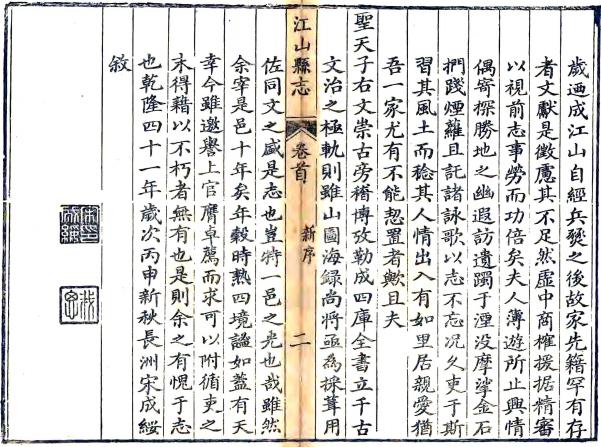 歲迺成江山自經兵燹之後故家先籍罕有存
者文獻是徵慮其不足然虛中商榷援据精審
以視前志事勞而功倍矣夫人薄遊所止興情
偶寄探勝地之幽遐訪遺躅于湮沒摩挲金石
捫踐煙蘿且託諸詠歌以志不忘况久吏于斯
習其風土而稔其人情出入有如里居親愛猶
吾一家尤有不能恝置者歟且夫
聖天子右文崇古旁稽博攷勒成四庫全書立千古
文治之極軌則雖山圖海録尚將亟為採葺用
江山縣志
卷首
新序
二
佐同文之盛是志也豈特一邑之光也哉雖然
余宰是邑十年矣年穀時熟四境謐如蓋有天
幸今雖邀譽上官膺卓薦而求可以附循吏之
末得藉以不朽者無有也是則余之有愧于志
也乾隆四十一年歲次丙申新秋長洲宋成綏
敘